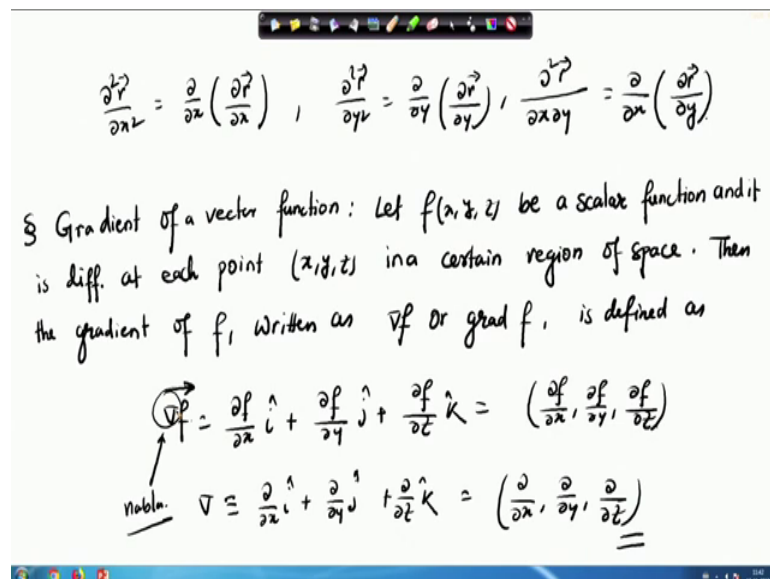 ∂²r⃗/∂x² = ∂/∂x (∂r⃗/∂x) , ∂²r⃗/∂y² = ∂/∂y (∂r⃗/∂y) , ∂²r⃗/∂x∂y = ∂/∂x (∂r⃗/∂y)
§ Gradient of a vector function : Let f(x, y, z) be a scalar function and it
is diff. at each point (x, y, z) in a certain region of space. Then
the gradient of f, written as ∇f or grad f, is defined as
∇⃗f = ∂f/∂x î + ∂f/∂y ĵ + ∂f/∂z k̂ = (∂f/∂x, ∂f/∂y, ∂f/∂z)
nabla. ∇ ≡ ∂/∂x î + ∂/∂y ĵ + ∂/∂z k̂ = (∂/∂x, ∂/∂y, ∂/∂z)